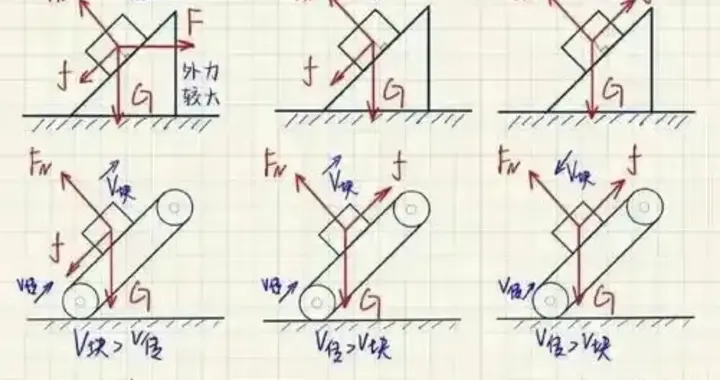 F
f
外力
较大
G
f
G
G
FN
V块
f
V传
G
V块>V传
FN
V块
f
V传
G
V传>V块
FN
V块
f
V传
G
V传>V块